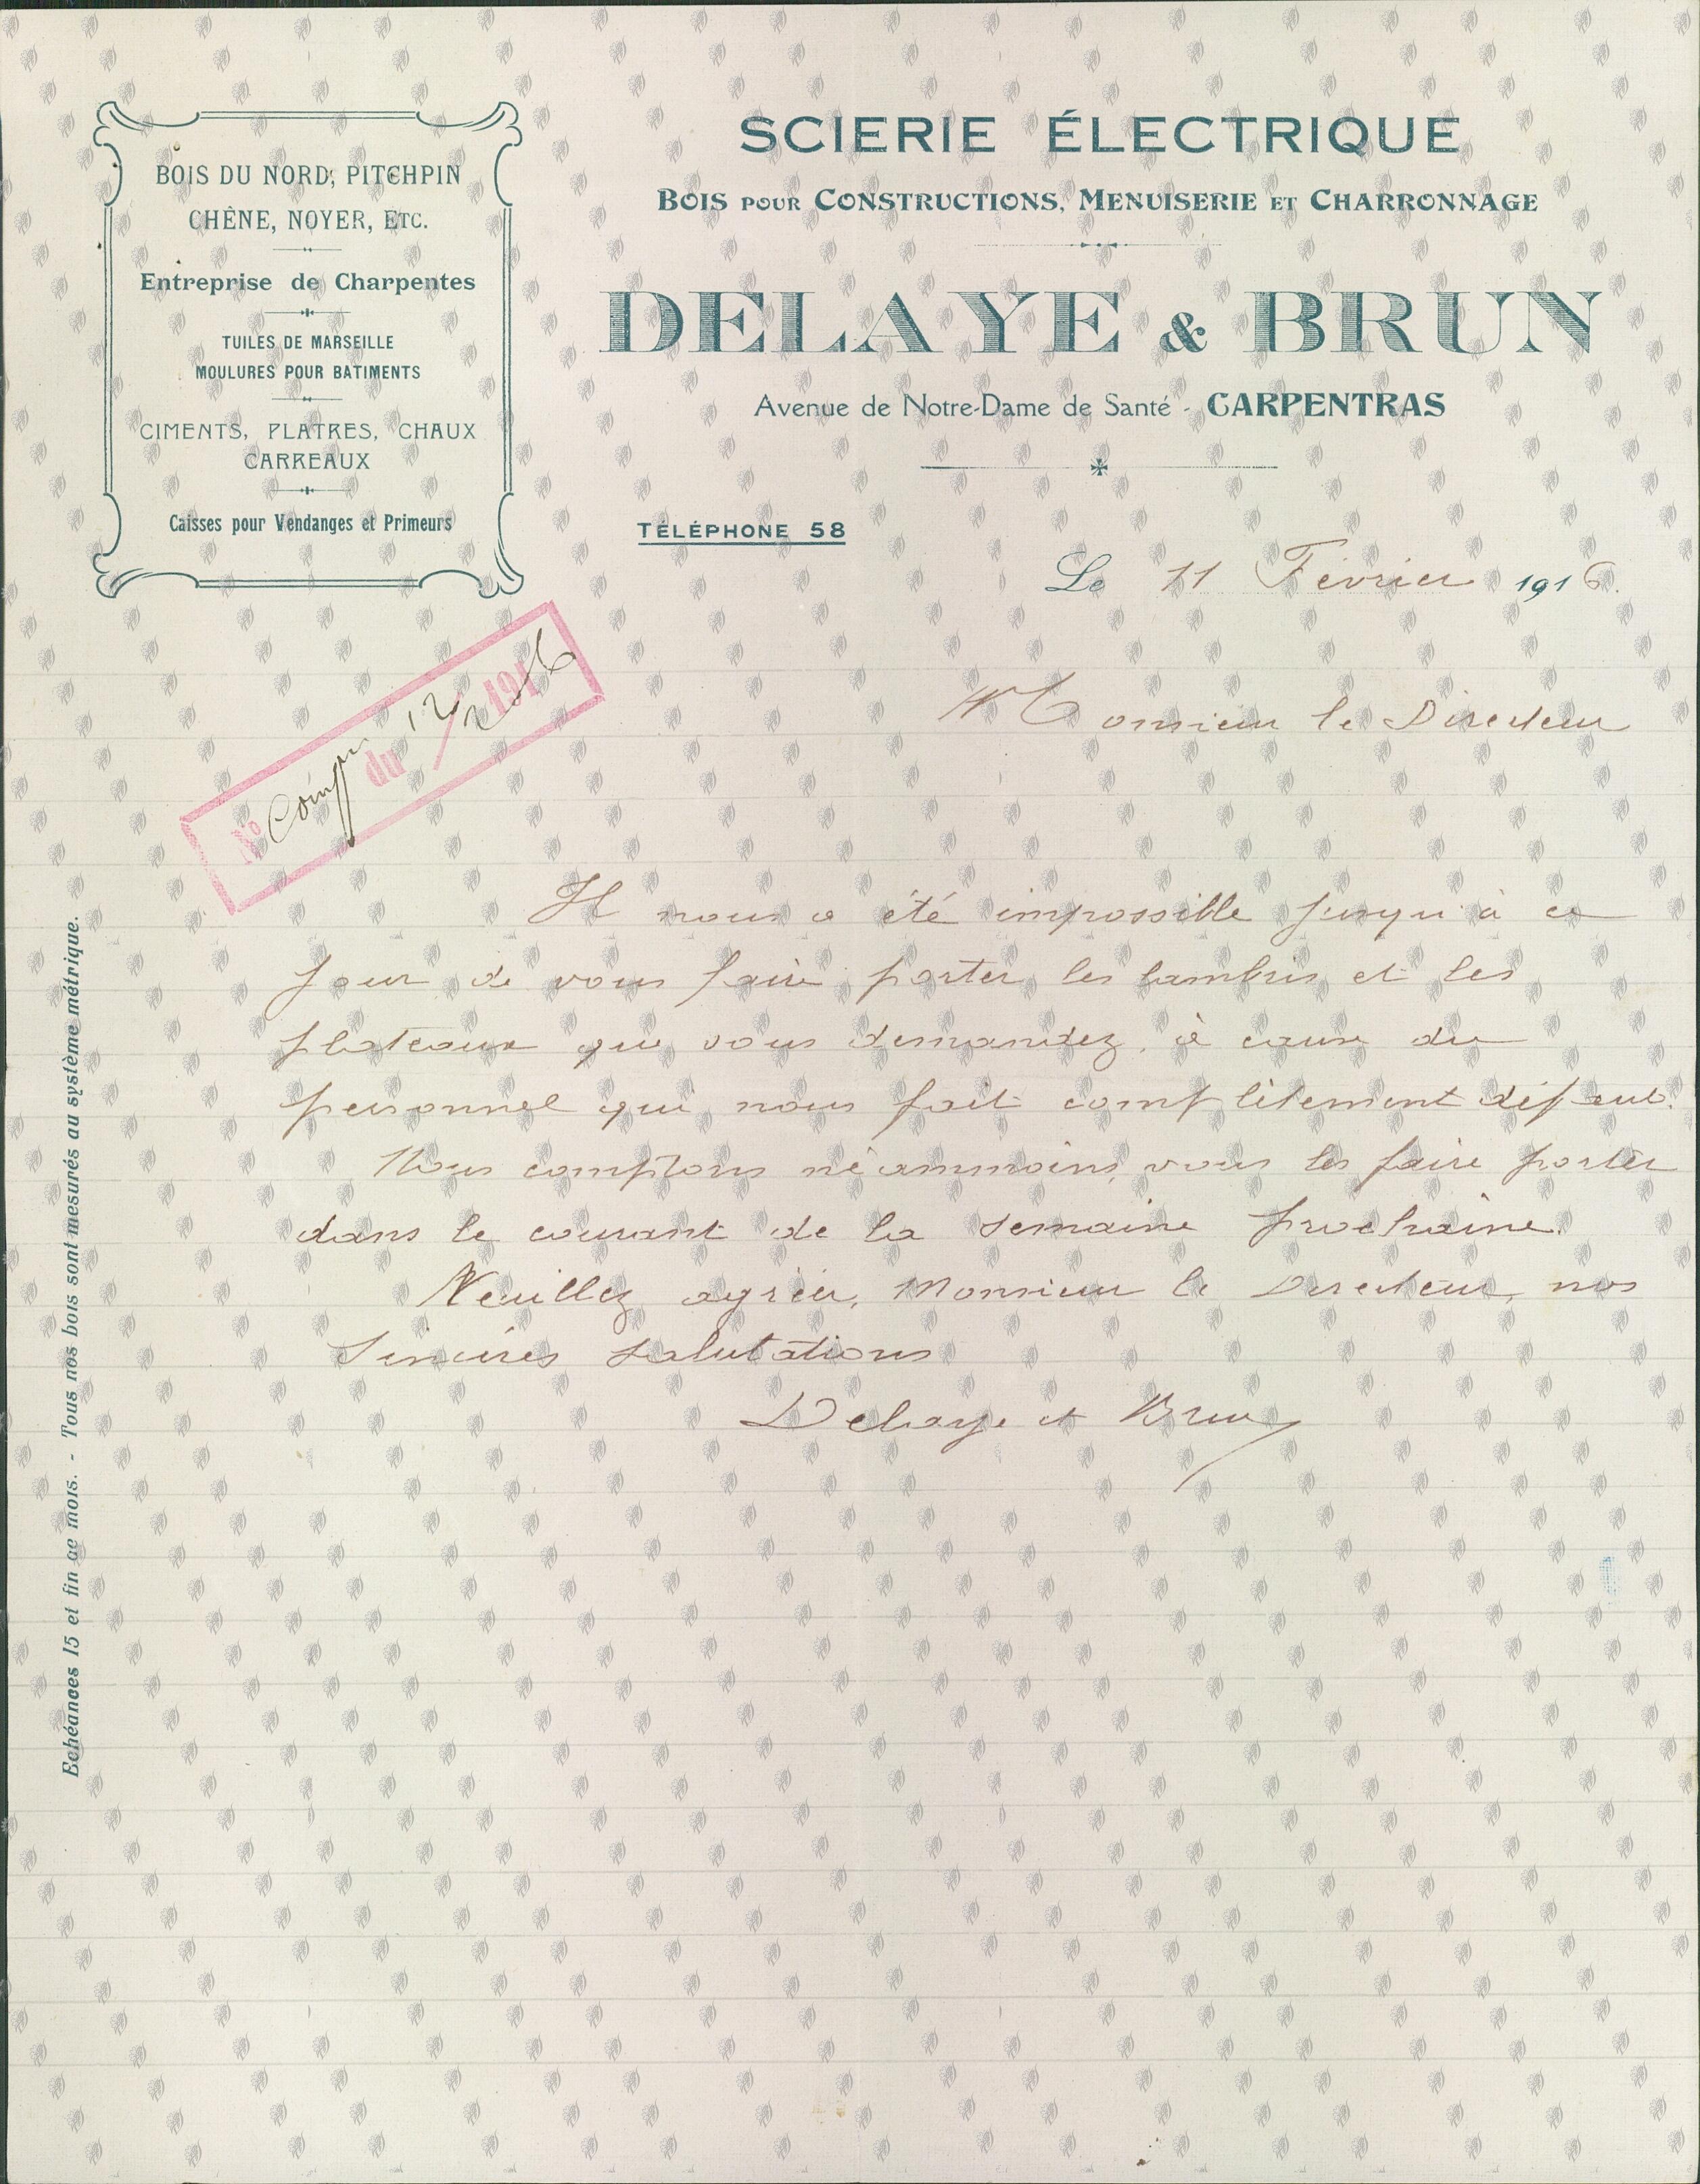 BOIS DU NORD, PITCHPIN
CHÊNE, NOYER, ETC.
Entreprise de Charpentes
TUILES DE MARSEILLE
MOULURES POUR BATIMENTS
CIMENTS, PLATRES, CHAUX
CARREAUX
Caisses pour Vendanges et Primeurs
SCIERIE ÉLECTRIQUE
BOIS POUR CONSTRUCTIONS, MENUISERIE ET CHARRONNAGE
DELAYE & BRUN
Avenue de Notre-Dame de Santé - CARPENTRAS
TÉLÉPHONE 58
Le 11 Février 1916.
N° du 12/2 1916
Monsieur le Directeur
Il nous a été impossible jusqu'à ce
jour de vous faire porter les lambris et les
plateaux que vous demandez, à cause du
personnel qui nous fait complètement défaut.
Nous comptons néammoins, vous les faire porter
dans le courant de la semaine prochaine.
Veuillez agréer, Monsieur le Directeur, nos
sincères salutations
Delaye et Brun
Echéances 15 et fin de mois. - Tous nos bois sont mesurés au système métrique.